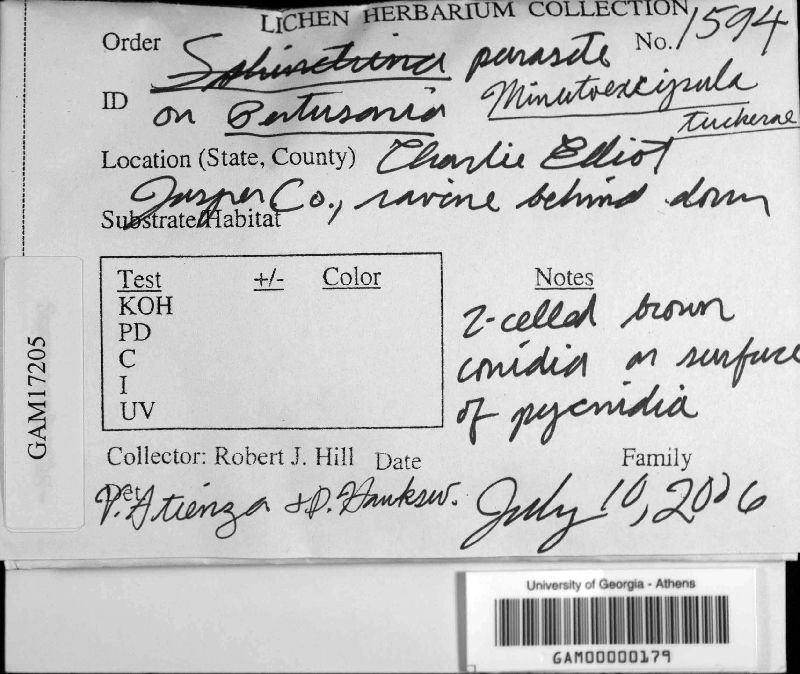 LICHEN HERBARIUM COLLECTION
Order Sphinctrina parasite No. 1594
ID on Pertusaria Minutoexcipula
tuckerae
Location (State, County) Charlie Elliot
Jasper Co., ravine behind dorm
Substrate/Habitat
Test +/- Color
KOH
PD
C
I
UV
Notes
2-celled brown
conidia on surface
of pycnidia
Collector: Robert J. Hill Date Family
Det. V. Atienza + D. Hawksw. July 10, 2006
GAM17205
University of Georgia - Athens
GAM00000179